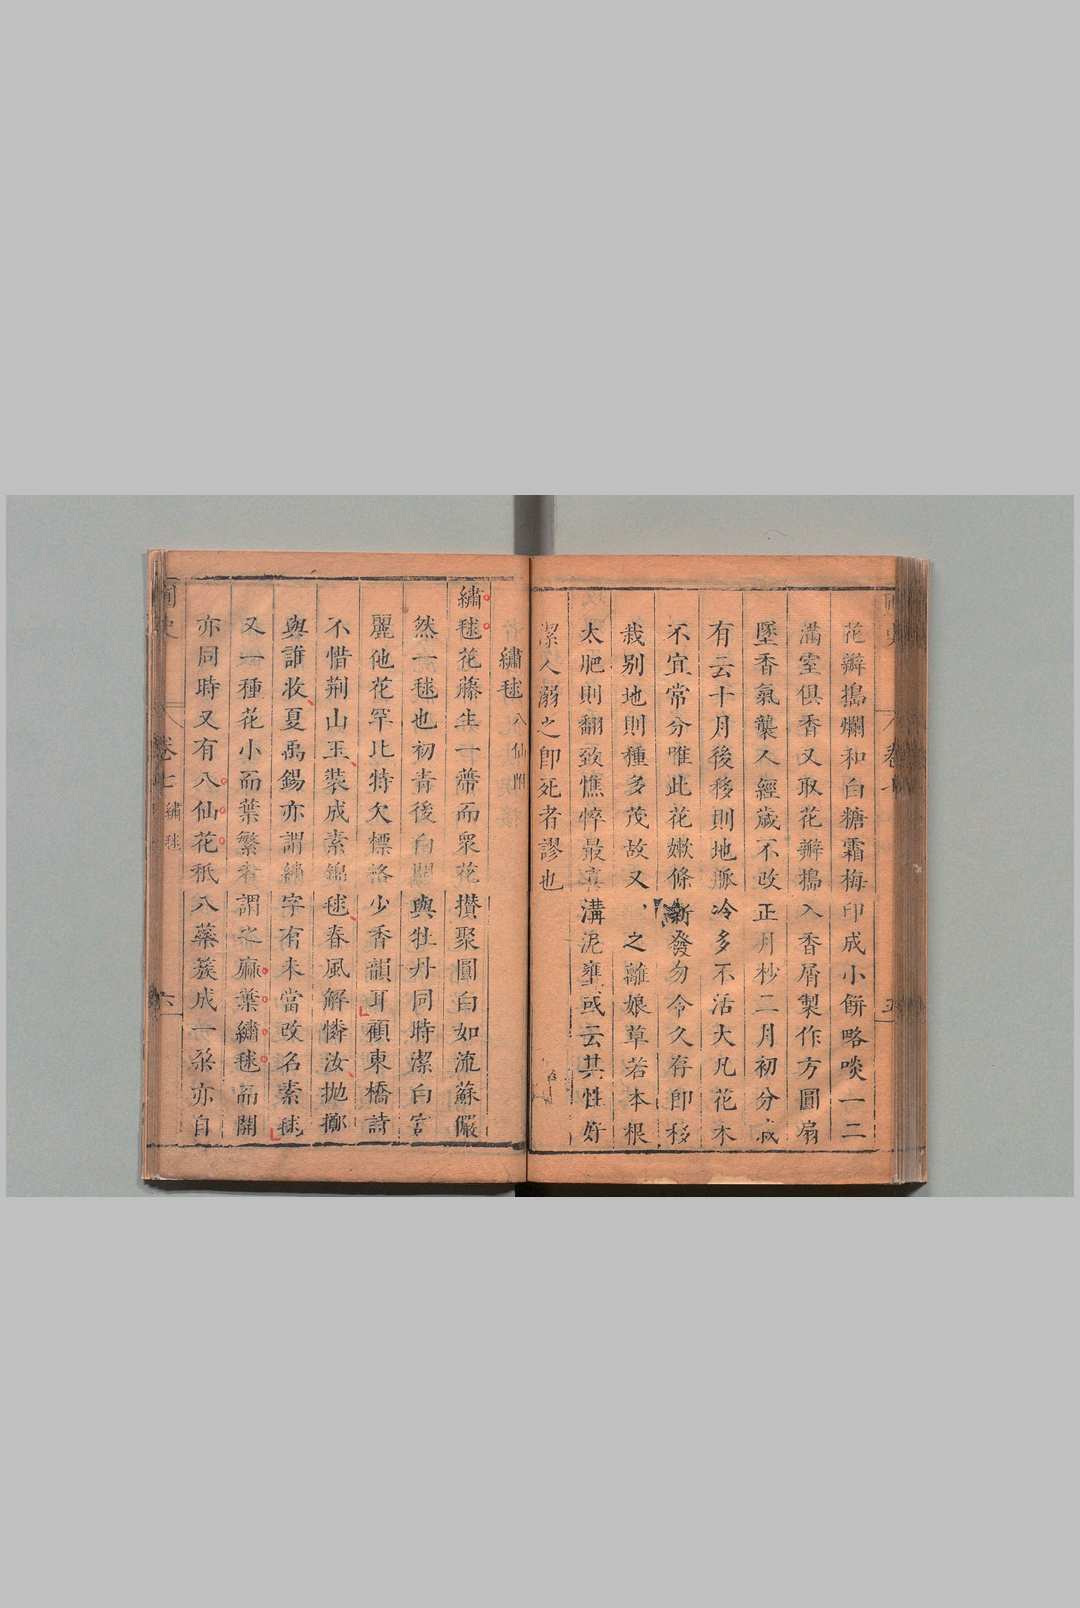 花瓣搗爛和白糖霜梅印成小餅略啖一二
滿室俱香又取花瓣搗入香屑製作方圓扇
墜香氣襲人經歲不改正月杪二月初分栽
有云十月後移則地脈冷多不活大凡花木
不宜常分唯此花嫩條新發勿令久存即移
栽別地則種多茂故又之離娘草若本根
太肥則翻致憔悴最喜溝泥壅或云其性好
潔人溺之即死者謬也
繡毬八仙
繡毬花藤生一蒂而眾花攢聚圓白如流蘇儼
然一毬也初青後白開與牡丹同時潔白言
麗他花罕比特欠標格少香韻耳顧東橋詩
不惜荊山玉裝成素錦毬春風解憐汝拋擲
與誰收夏禹錫亦謂繡字有未當改名素毬
又一種花小而葉繁者謂之麻葉繡毬而開
亦同時又有八仙花秖八蘂簇成一朵亦自
卷七
繡毬
六